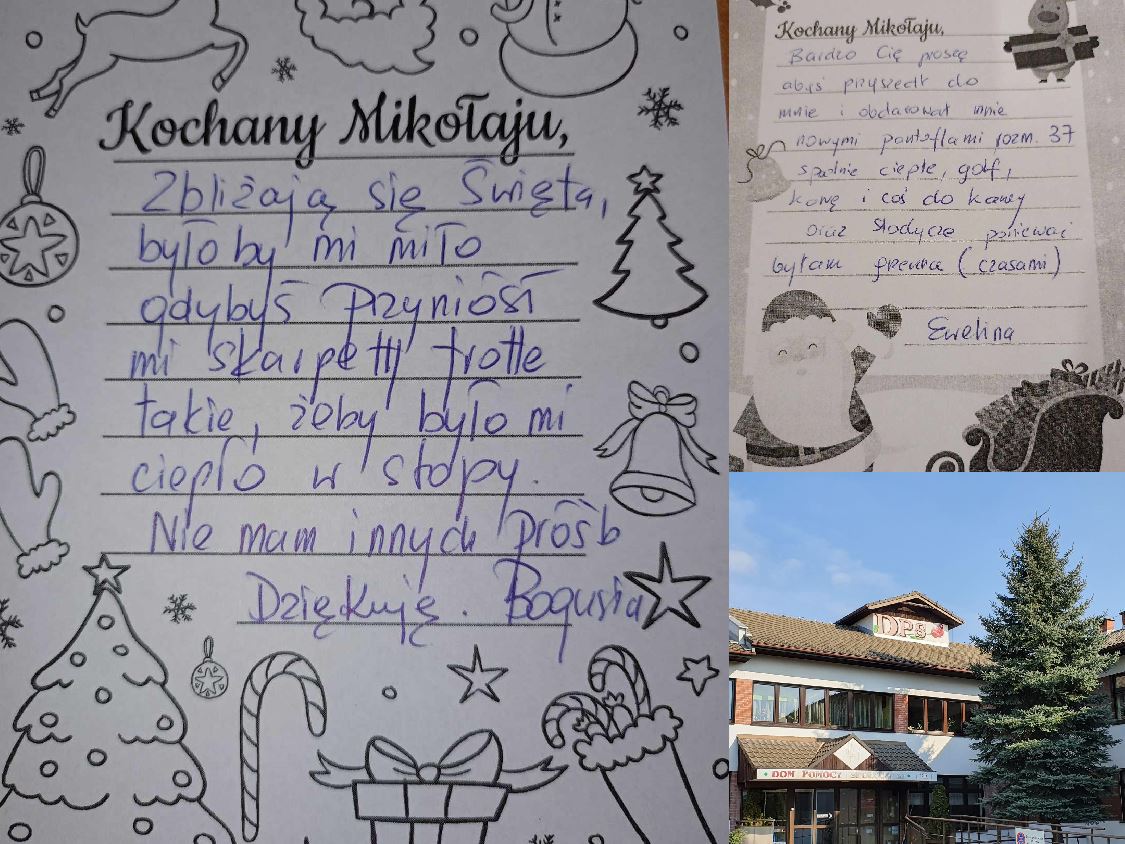 Kochany Mikołaju,
Zbliżają się Święta,
byłoby mi miło
gdybyś przyniósł
mi skarpetty frotte
takie, żeby było mi
ciepło w stopy.
Nie mam innych próśb
Dziękuję. Bogusia
Kochany Mikołaju,
Bardzo Cię proszę
abyś przyszedł do
mnie i obdarował mnie
nowymi pantoflami rozm. 37
spodnie ciepłe, golf,
kawę i coś do kawy
oraz słodycze ponieważ
byłam grzeczna (czasami)
Ewelina
DPS
DOM POMOCY